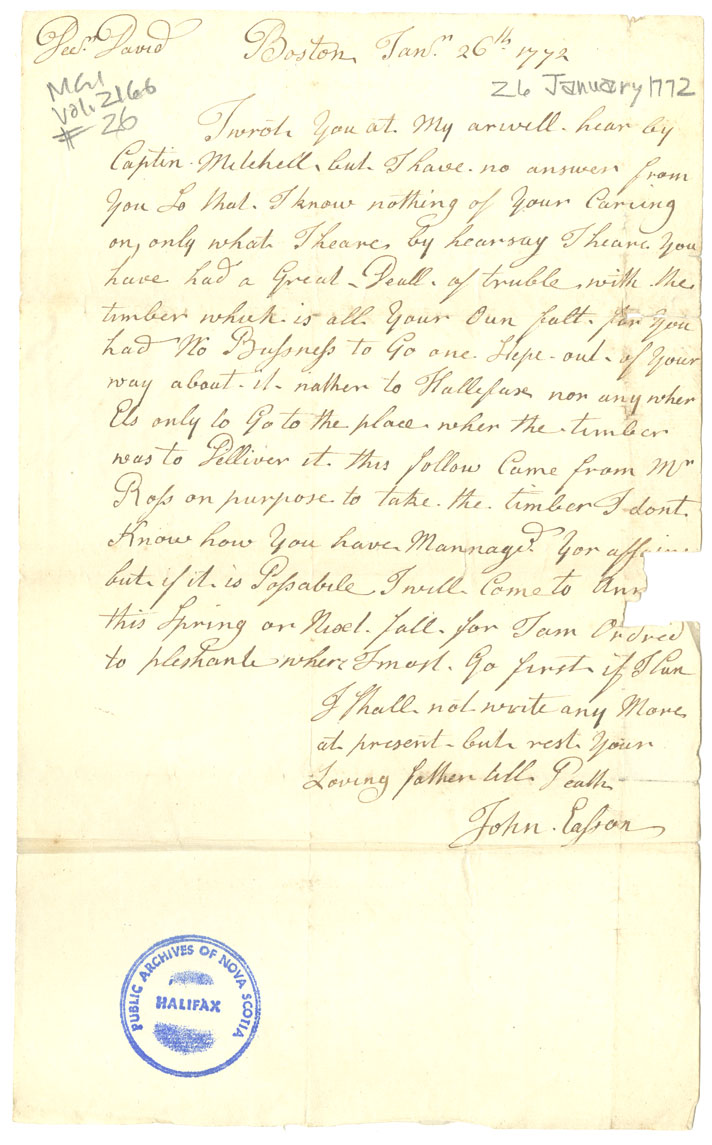 Deer David Boston Janr 26th 1772
MG1
Vol. 2166
# 26
26 January 1772
I wrote You at My arwell hear by
Captin Mitchell but I have no answer from
You So that I know nothing of Your Cariing
on, only what I heare by hearsay I heare You
have had a Great Deall of truble with the
timber which is all Your Oun falt for You
had No Bussness to Go one Stepe out of Your
way about it nather to Hallefaxe nor any wher
Els only to Go to the place wher the timber
was to Delliver it this follow Came from Mr
Ross on purpose to take the timber I dont
Know how You have Mannaged Yor affairs
but if it is Possabile I will Come to Ann
this Spring or Next fall for I am Ordred
to where I most Go first if I Can
I Shall not write any More
at present but rest Your
Loving father till Death
John Easson
PUBLIC ARCHIVES OF NOVA SCOTIA
HALIFAX